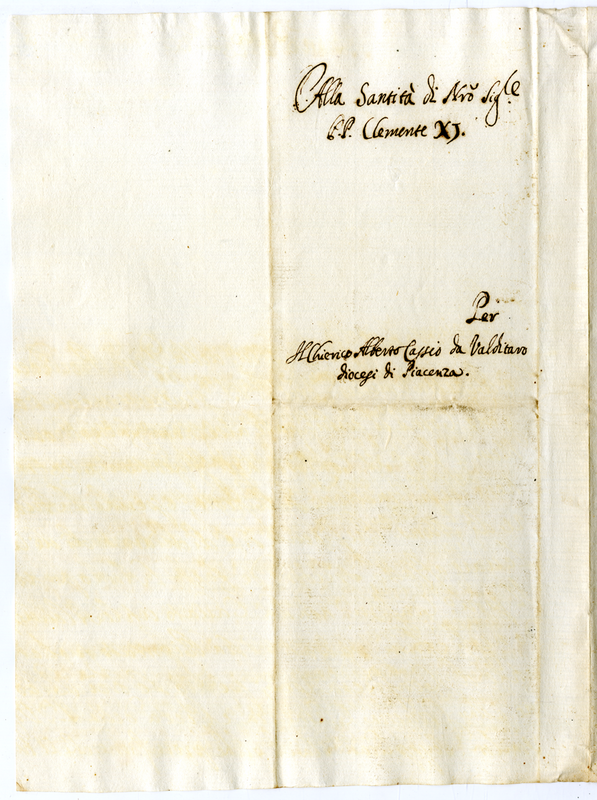 Alla Santità di Nrõ Sig.re
P.P. Clemente XJ.
Per
Il Chierico Alberto Cassio da Valditaro
diocesi di Piacenza.